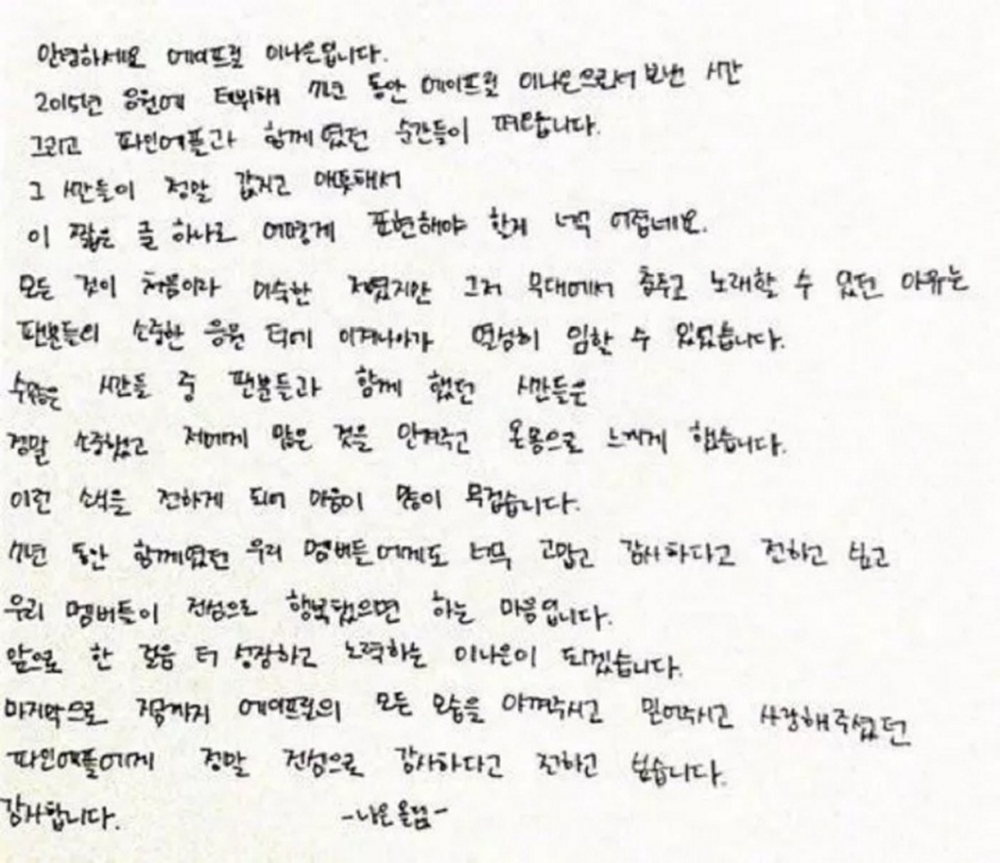 안녕하세요 에이프릴 이나은입니다.
2015년 응원에 더뷔해 7년 동안 에이프릴 이나은으로서 보낸 시간
그리고 파인애플과 함께 였던 순간들이 떠오릅니다.
그 시간들이 정말 값지고 애틋해서
이 짧은 글 하나로 어떻게 표현해야 할지 너무 어렵네요.
모든 것이 처음이라 미숙한 저였지만 그저 무대에서 춤추고 노래할 수 있던 이유는
팬분들의 소중한 응원 덕에 이겨나아가 열심히 임할 수 있었습니다.
수많은 시간들 중 팬분들과 함께 했던 시간들은
정말 소중했고 저에게 많은 것을 안겨주고 온몸으로 느끼게 했습니다.
이런 소식을 전하게 되어 마음이 많이 무겁습니다.
7년 동안 함께였던 우리 멤버들에게도 너무 고맙고 감사하다고 전하고 싶고
우리 멤버들이 진심으로 행복했으면 하는 마음입니다.
앞으로 한 걸음 더 성장하고 노력하는 이나은이 되겠습니다.
마지막으로 지금까지 에이프릴의 모든 모습을 아껴주시고 믿어주시고 사랑해주셨던
파인애플에게 정말 진심으로 감사하다고 전하고 싶습니다.
감사합니다. -나은올림-